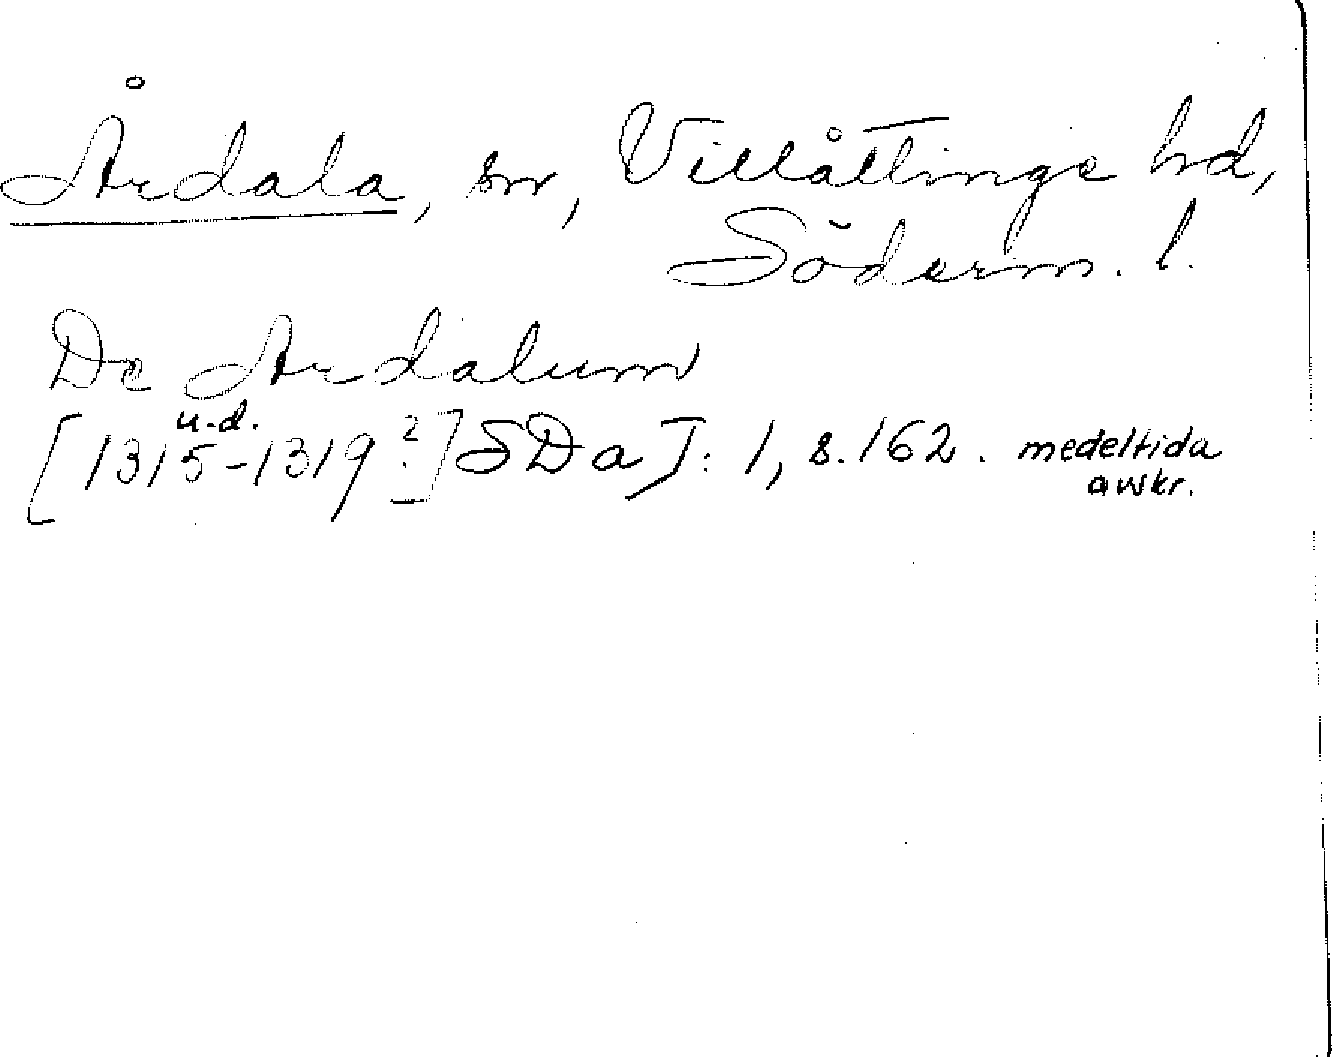 Årdala, sn, Villåttinge hd,
Söderm. l.
De Ardalum
u.d.
[1315-1319?] SDa I: 1, s. 162. medeltida
avskr.